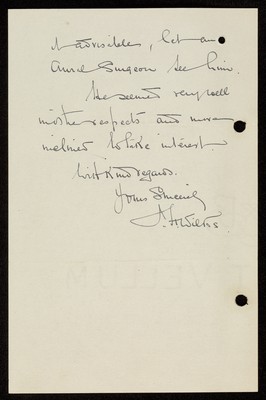 it advisible, let an
Aural Surgeon see him.
He seemed very well
in other respects and more
inclined to take interest
With kind regards.
Yours Sincerely
Wills